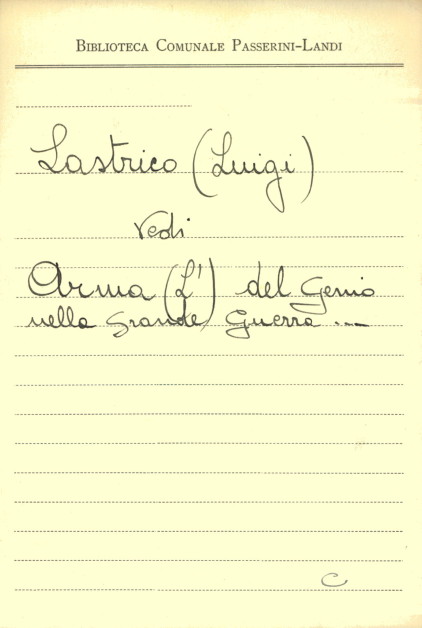 BIBLIOTECA COMUNALE PASSERINI-LANDI
Lastrico (Luigi)
Vedi
Arma (L') del Genio
nella Grande Guerra ...
C